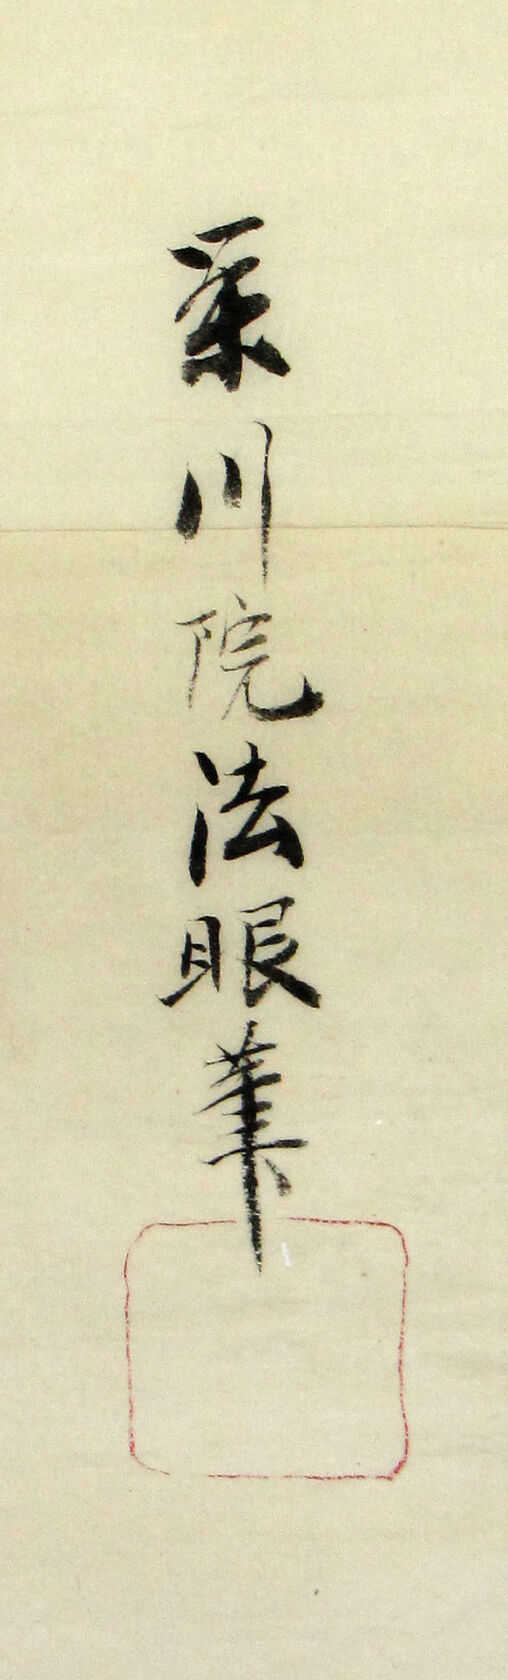 栄川院法眼筆